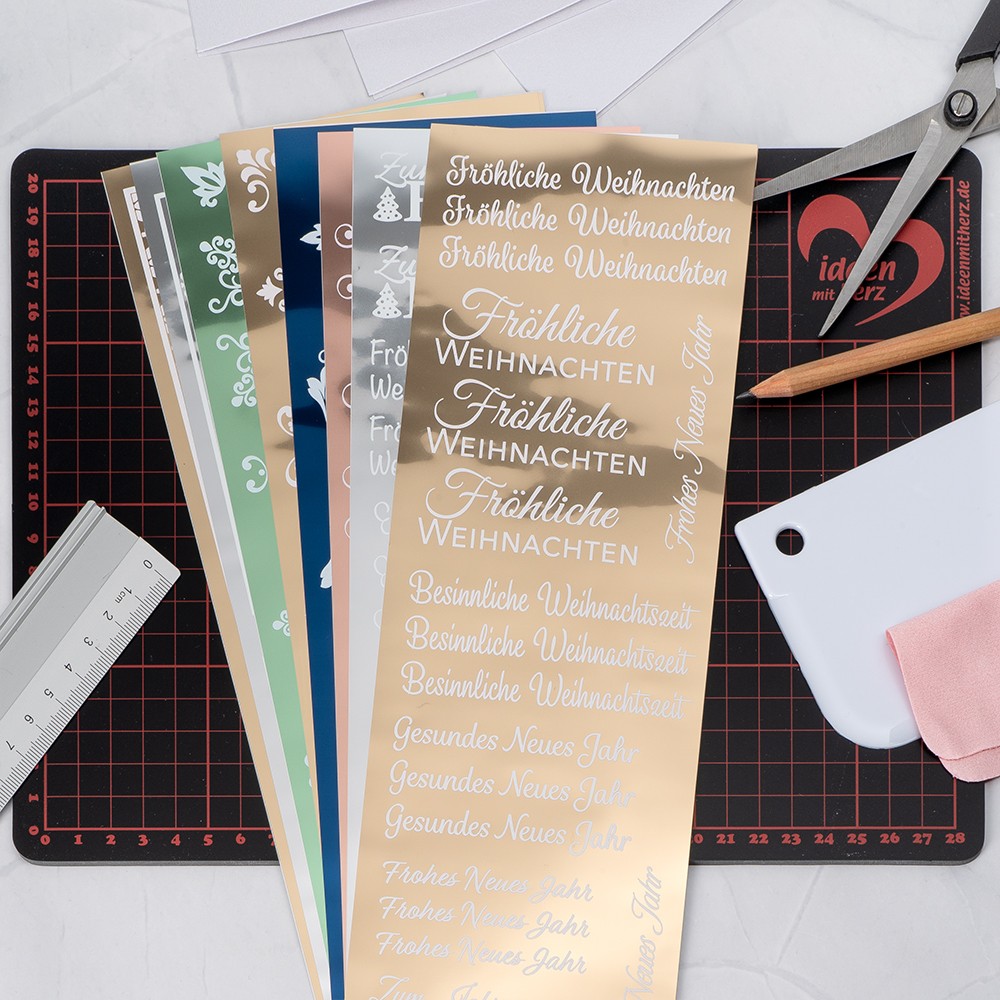 Fröhliche Weihnachten
Fröhliche Weihnachten
Fröhliche Weihnachten
Fröhliche
WEIHNACHTEN
Fröhliche
WEIHNACHTEN
Fröhliche
WEIHNACHTEN
Frohes Neues Jahr
Besinnliche Weihnachtszeit
Besinnliche Weihnachtszeit
Besinnliche Weihnachtszeit
Gesundes Neues Jahr
Gesundes Neues Jahr
Gesundes Neues Jahr
Frohes Neues Jahr
Frohes Neues Jahr
Frohes Neues Jahr
Neues Jahr
Zum
Zu
Zu
Frö
We
Frö
We
ideen
mit herz
www.ideenmitherz.de
20
19
18
17
16
15
14
13
12
11
10
9
8
1
0
0 1 2 3 4 5 6 7
20 21 22 23 24 25 26 27 28
0 1cm 2 3 4 5 6 7